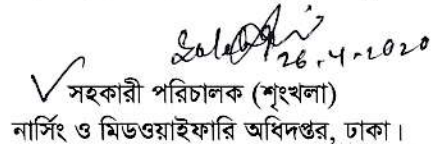 26.4.2020
সহকারী পরিচালক (শৃংখলা)
নার্সিং ও মিডওয়াইফারি অধিদপ্তর, ঢাকা।